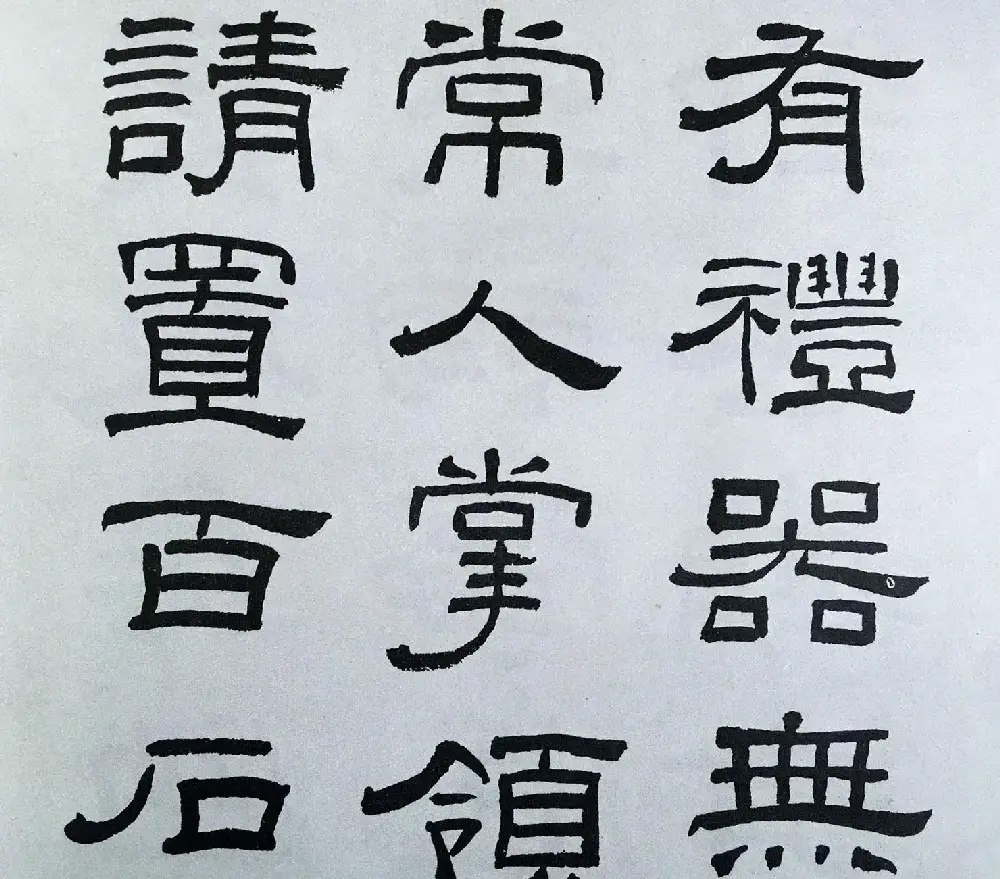 有禮器無
常人掌領
請置百石